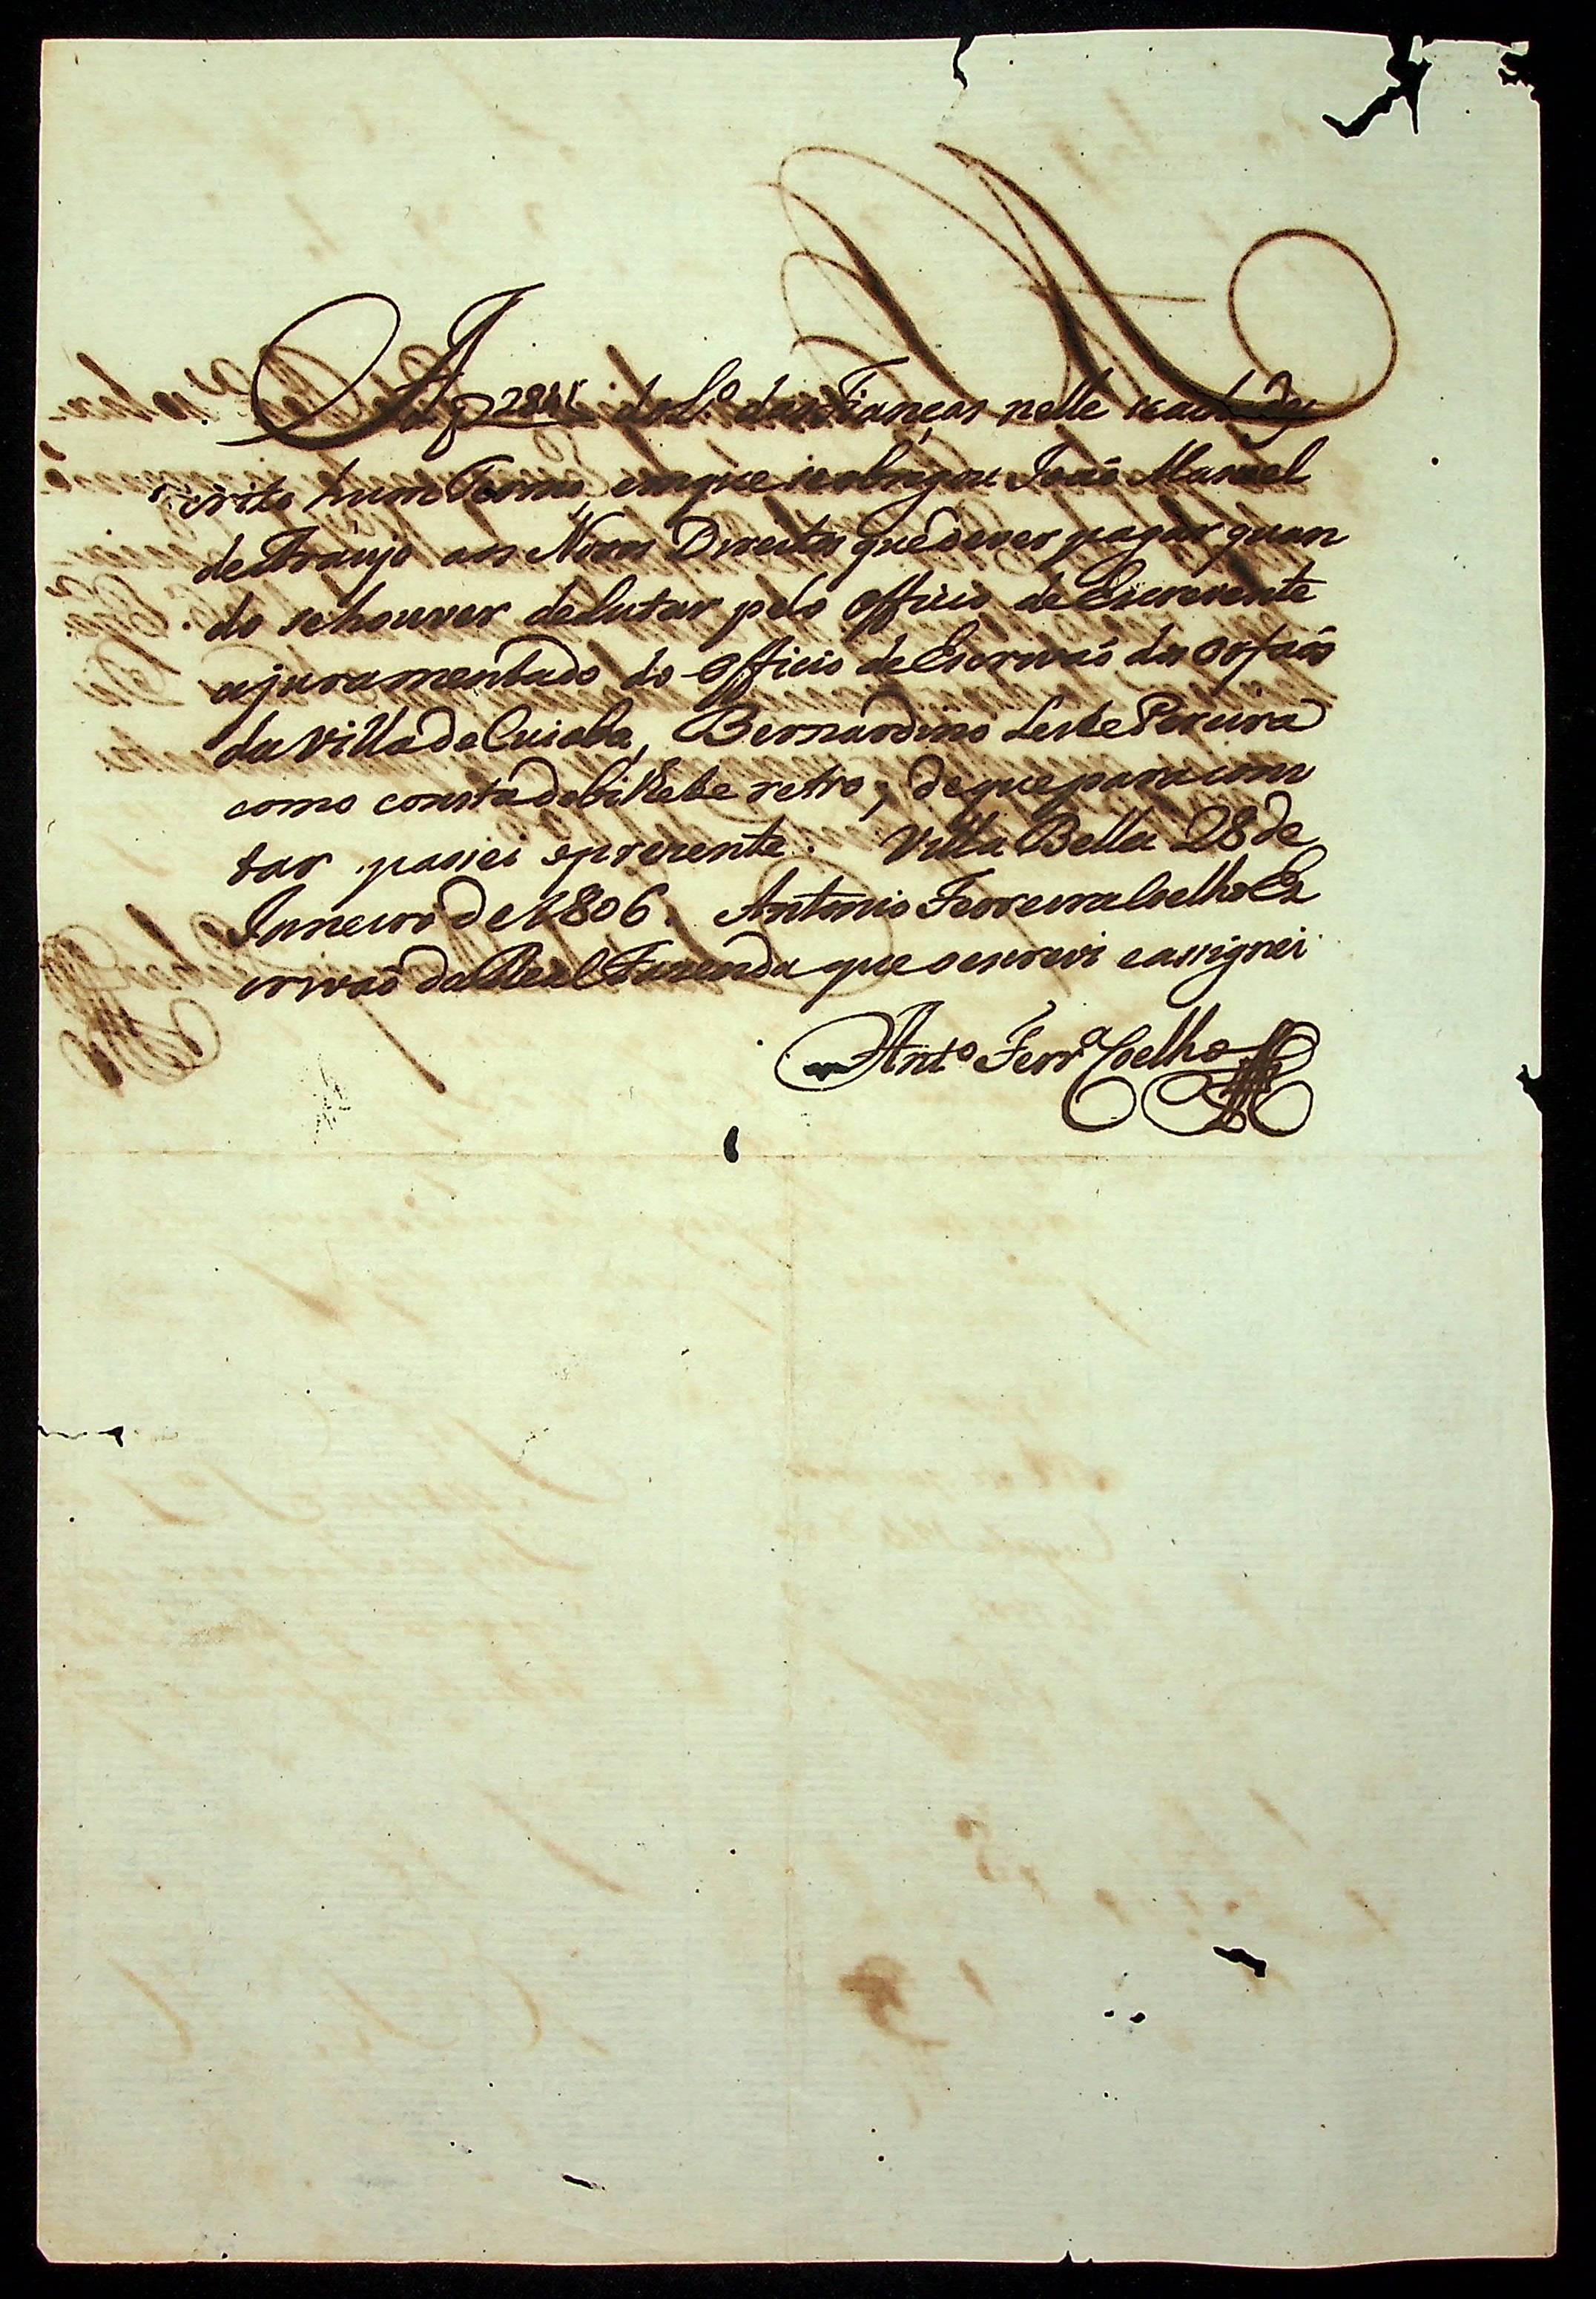 A f 284 do L.º das Fianças nelle se acha des
crito hum Termo, em que se obrigou João Manoel
de Araujo aos Novos Direitos que dever pagar quan
do se houver de lutar pelo Officio de Escrevente
ajuramentado do Officio de Escrivaõ dos Orfaõs
da Villa de Cuiaba, Bernardino Leite Pereira
como consta do bilhete retro, de que para cons
tar passei o prezente. Villa Bella 28 de
Janeiro de 1806. Antonio Ferreira Coelho Es
crivaõ da Real Fazenda que o escrevi e assignei
Ant.º Ferr.ª Coelho